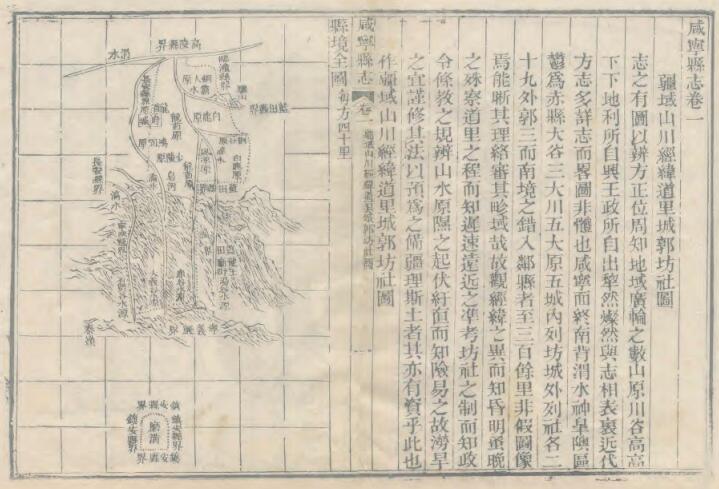 咸寧縣志卷一
疆域山川經緯道里城郭坊社圖
志之有圖以辨方正位周知地域廣輪之數山原川谷高高
下下地利所自興王政所自出犂然燦然與志相表裏近代
方志多詳志而畧圖非體也咸寧面終南背渭水神臯隩區
鬱爲赤縣大谷三大川五大原五城內列坊城外列社各二
十九外郭三而南境之錯入鄰縣者至三百餘里非假圖像
焉能晰其理絡審其畛域哉故觀經緯之異而知昏明蚤晚
之殊察道里之程而知遲速遠近之凖考坊社之制而知政
令條敎之規辨山水原隰之起伏紆直而知險易之故澇旱
之宜謹修其法以預爲之備疆理斯土者其亦有資乎此也
作疆域山川經緯道里城郭坊社圖
咸寧縣志
卷一
疆域山川經緯道里城郭坊社圖
縣境全圖 每方四十里
高陵縣界
渭水
臨潼縣界
銅人原
霸水
藍田縣界
白鹿原
長安縣界
滻水
鎮安縣界
鎮安縣界
鎮安縣界
鎮安縣界